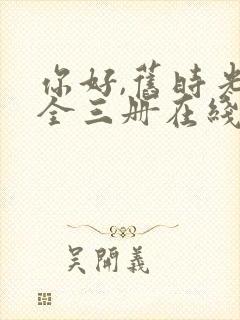 你好,舊時光
全三册在綫
吳開義